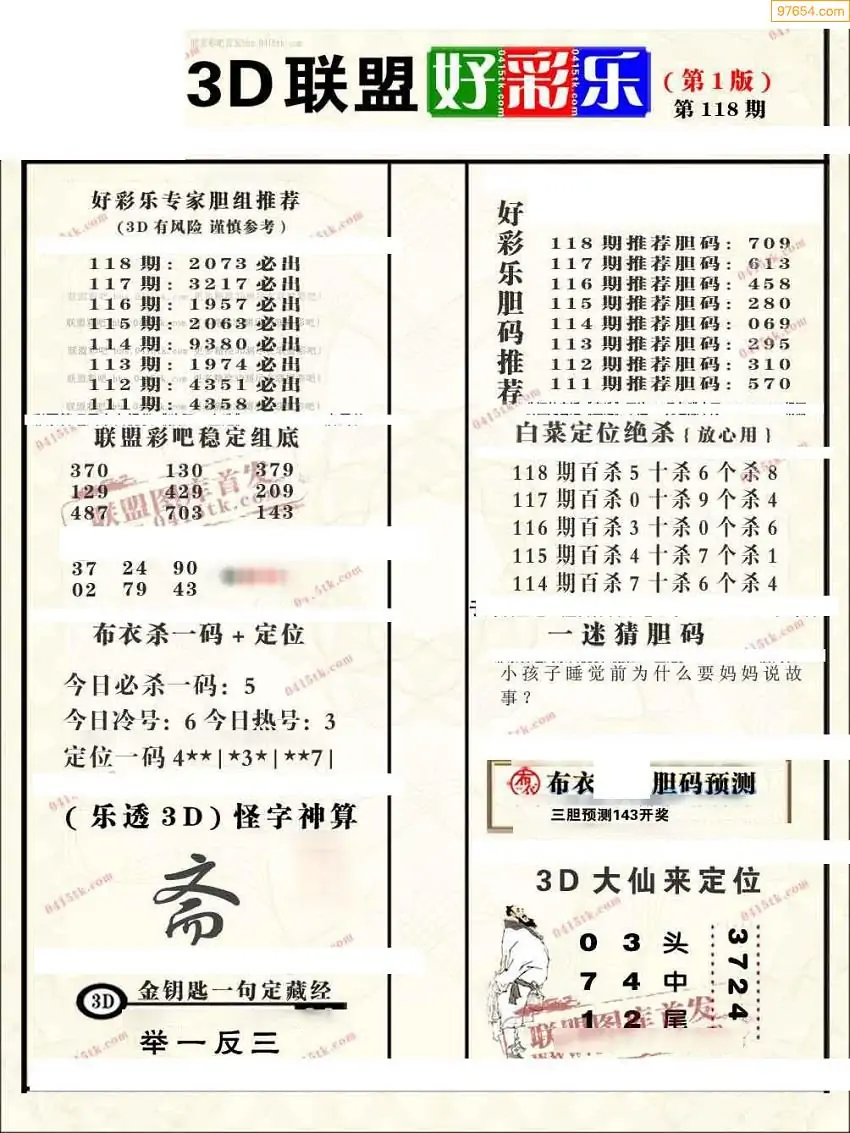 97654.com
3D联盟好彩乐
(第1版)
第118期
好彩乐专家胆组推荐
(3D有风险 谨慎参考)
118期: 2073必出
117期: 3217必出
116期: 1957必出
115期: 2063必出
114期: 9380必出
113期: 1974必出
112期: 4351必出
111期: 4358必出
联盟彩吧稳定组底
370 130 379
129 429 209
487 703 143
37 24 90
02 79 43
布衣杀一码+定位
今日必杀一码: 5
今日冷号: 6 今日热号: 3
定位一码 4**|*3*|**7|
(乐透3D)怪字神算
斋
3D 金钥匙一句定藏经
举一反三
好彩乐胆码推荐
118期推荐胆码: 709
117期推荐胆码: 613
116期推荐胆码: 458
115期推荐胆码: 280
114期推荐胆码: 069
113期推荐胆码: 295
112期推荐胆码: 310
111期推荐胆码: 570
白菜定位绝杀{放心用}
118期百杀5十杀6个杀8
117期百杀0十杀9个杀4
116期百杀3十杀0个杀6
115期百杀4十杀7个杀1
114期百杀7十杀6个杀4
一迷猜胆码
小孩子睡觉前为什么要妈妈说故
事?
布衣 胆码预测
三胆预测143开奖
3D大仙来定位
0 3 头
7 4 中
1 2 尾
3724
联盟图库首发
0415tk.com